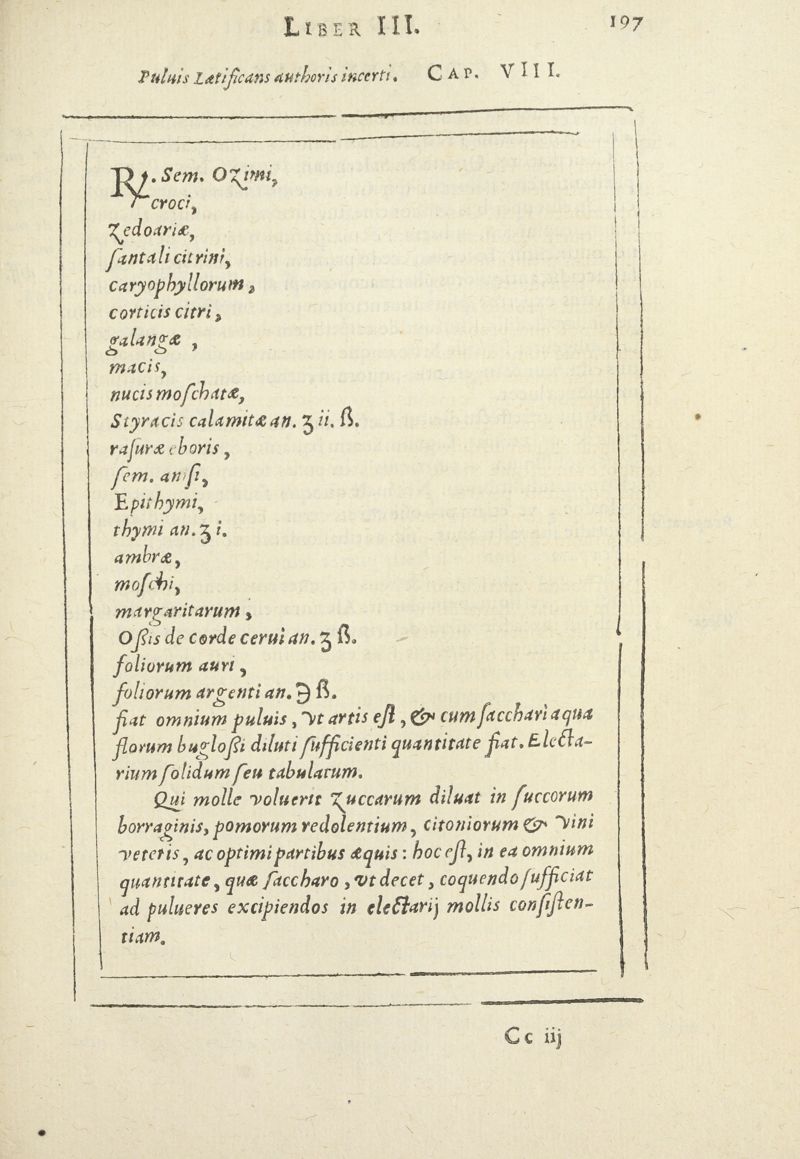 LIBER III. 197
Puluis Lætificans authoris incerti. CAP. VIII.
℞. Sem. Ozimi,
croci,
Zedoariæ,
ſantali citrini,
caryophyllorum,
corticis citri,
galangæ,
macis,
nucis moſchatæ,
Styracis calamitæ an. ʒ ii. ß.
raſuræ eboris,
ſem. aniſi,
Epithymi,
thymi an. ʒ i.
ambræ,
moſchi,
margaritarum,
Oßis de corde cerui an. ʒ ß.
foliorum auri,
foliorum argenti an. ℈ ß.
fiat omnium puluis, vt artis eſt, & cum ſacchari aqua
florum bugloßi diluti ſufficienti quantitate fiat. Electa-
rium ſolidum ſeu tabulatum.
Qui molle voluerit Zuccarum diluat in ſuccorum
borraginis, pomorum redolentium, citoniorum & vini
veteris, ac optimi partibus æquis: hoc eſt, in ea omnium
quantitate, quæ ſaccharo, vt decet, coquendo ſufficiat
ad pulueres excipiendos in electarij mollis conſiſten-
tiam.
Cc iij